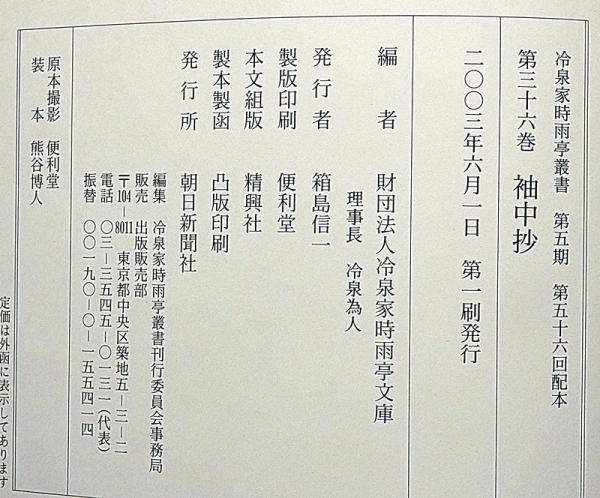 冷泉家時雨亭叢書　第五期　第五十六回配本
第三十六巻　袖中抄
二〇〇三年六月一日　第一刷発行
編者　財団法人冷泉家時雨亭文庫
理事長　冷泉為人
発行者　箱島信一
製版印刷　便利堂
本文組版　精興社
製本製函　凸版印刷
発行所　朝日新聞社
編集　冷泉家時雨亭叢書刊行委員会事務局
販売　出版販売部
〒104-8011　東京都中央区築地五－三－二
電話　〇三－三五四五－〇一三一（代表）
振替　〇〇一九〇－〇－一五五四一四
原本撮影　便利堂
装本　熊谷博人
定価は外函に表示してあります